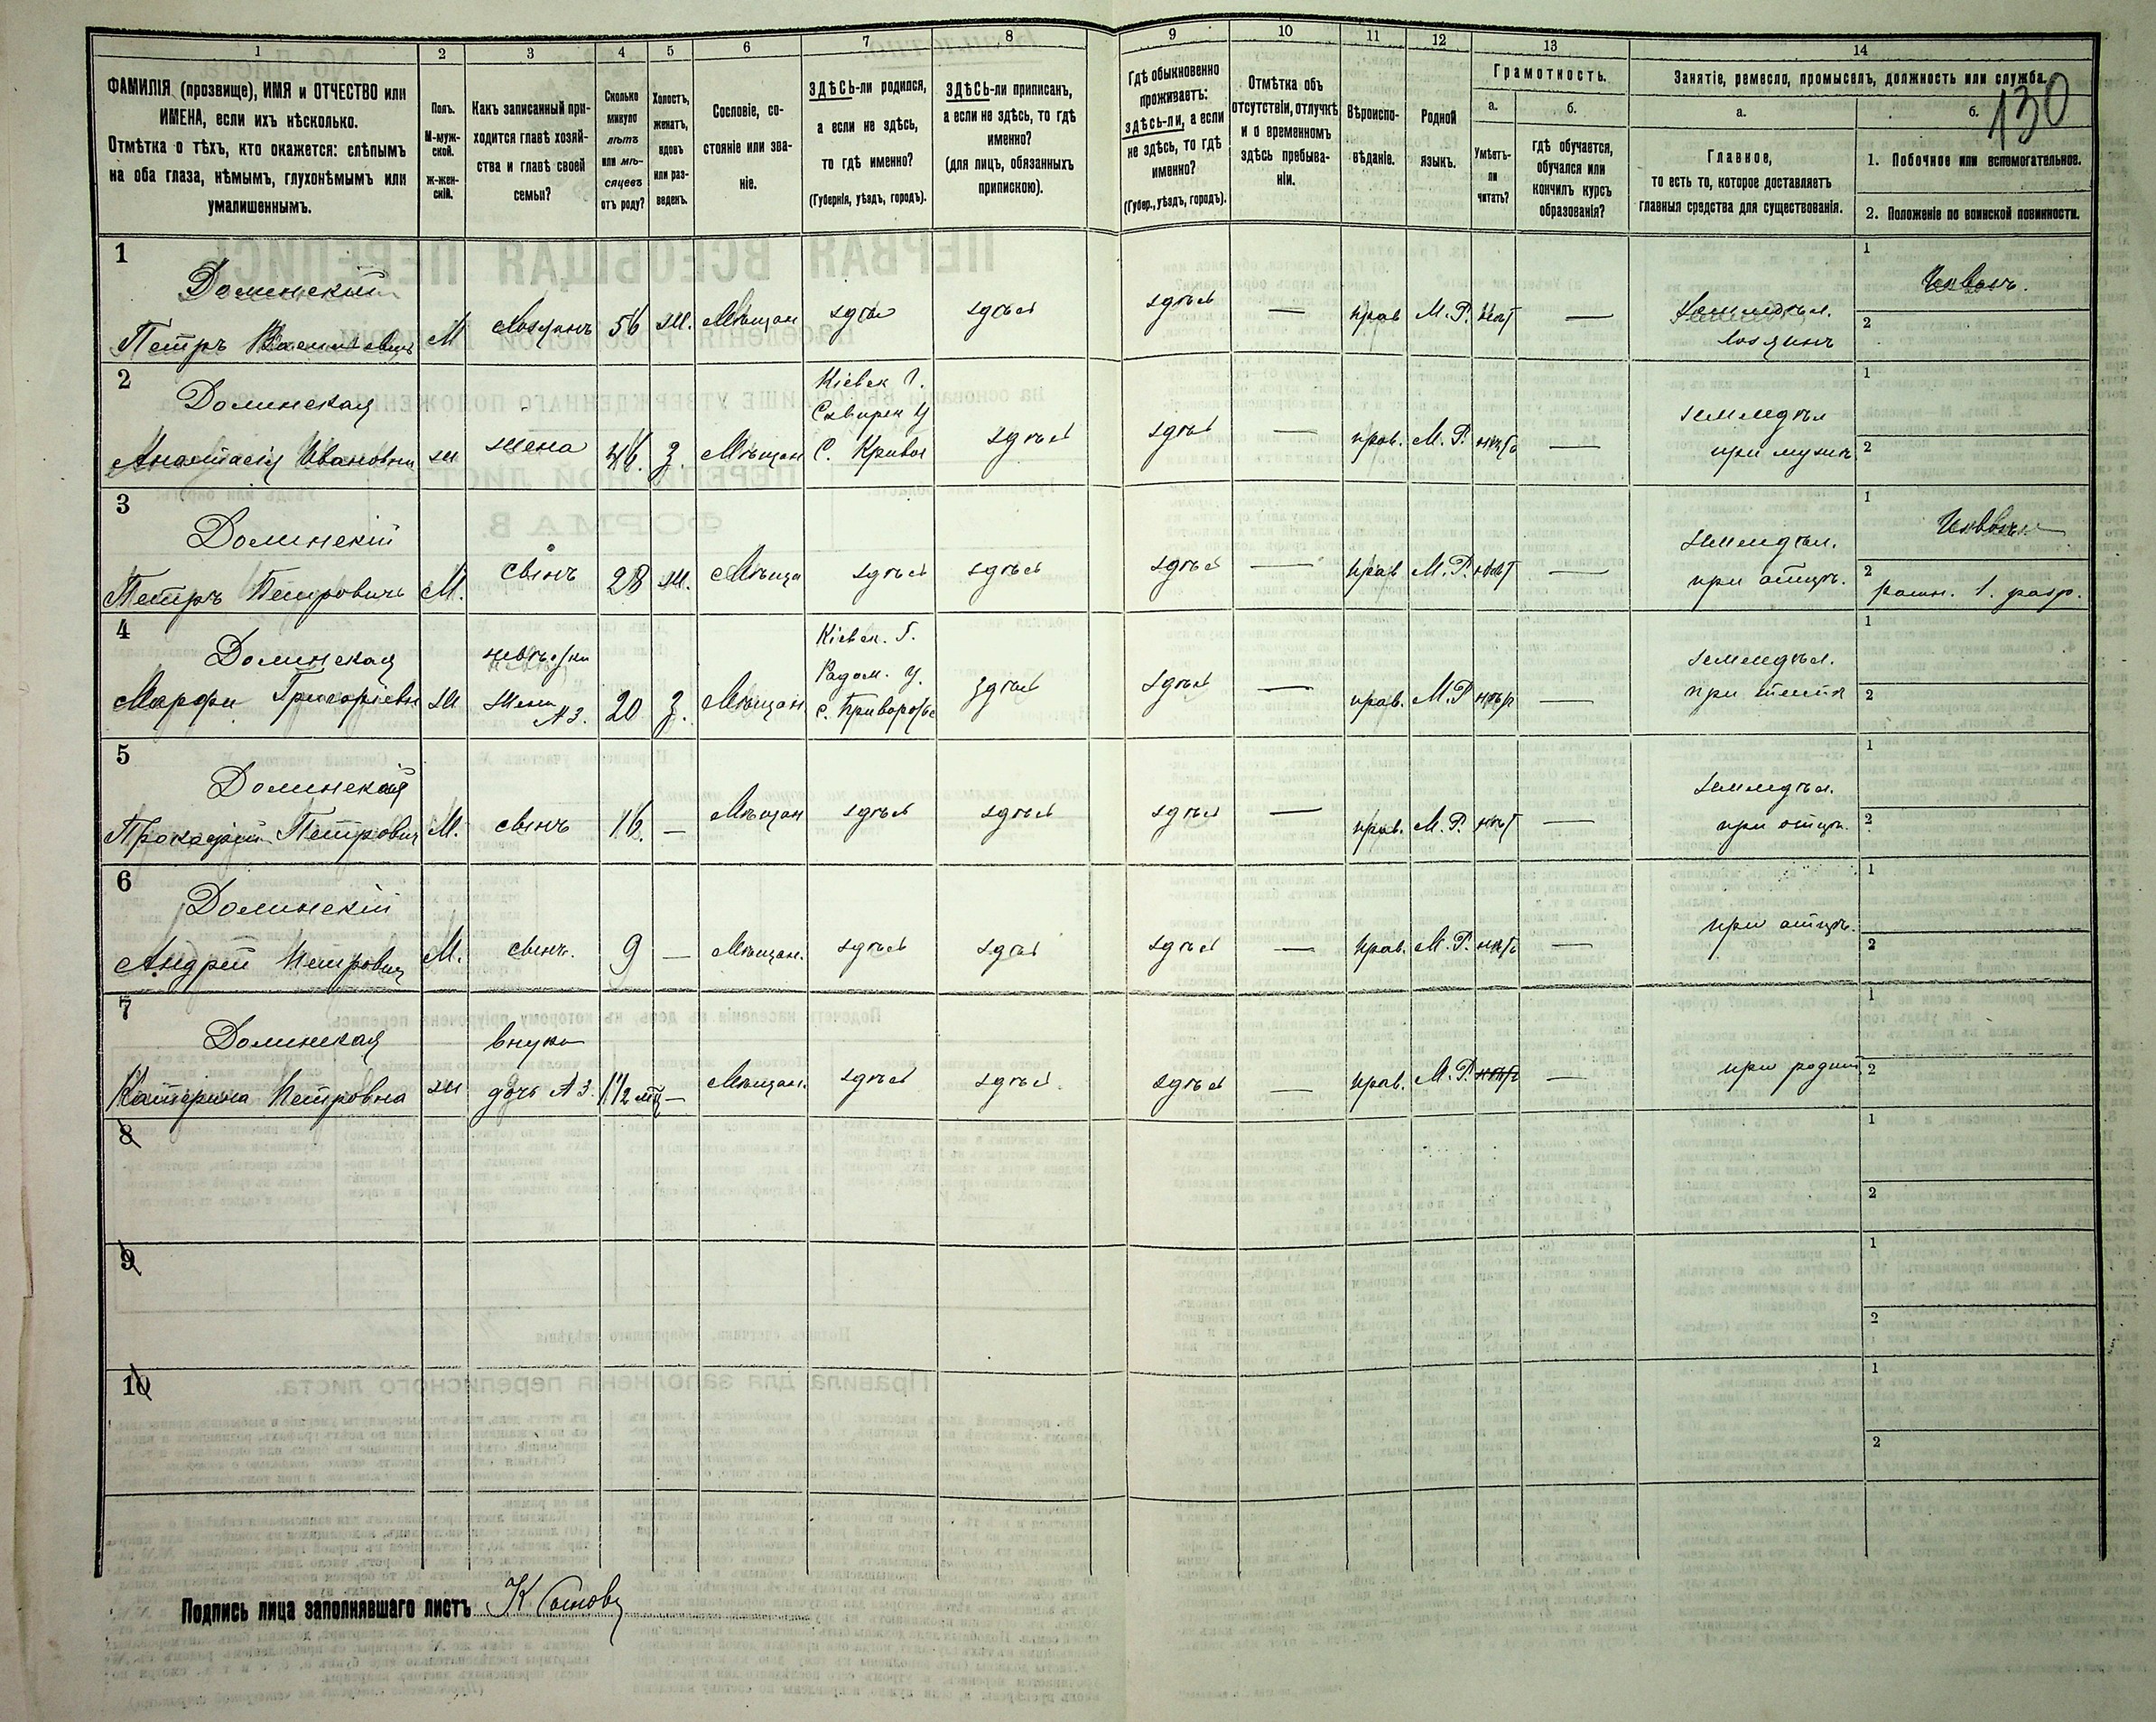 1 2 3 4 5 6 7 8 9 10 11 12 13 14
ФАМИЛІЯ (прозвище), ИМЯ и ОТЧЕСТВО или
ИМЕНА, если ихъ нѣсколько.
Отмѣтка о тѣхъ, кто окажется: слѣпымъ
на оба глаза, нѣмымъ, глухонѣмымъ или
умалишеннымъ.
Полъ.
М-муж-
ской.
ж-жен-
скій.
Какъ записанный при-
ходится главѣ хозяй-
ства и главѣ своей
семьи?
Сколько
минуло
лѣтъ
или мѣ-
сяцевъ
отъ роду?
Холостъ,
женатъ,
вдовъ
или раз-
веденъ.
Сословіе, со-
стояніе или зва-
ніе.
ЗДѢСЬ-ли родился,
а если не здѣсь,
то гдѣ именно?
(Губернія, уѣздъ, городъ).
ЗДѢСЬ-ли приписанъ,
а если не здѣсь, то гдѣ
именно?
(для лицъ, обязанныхъ
припискою).
Гдѣ обыкновенно
проживаетъ:
здѣсь-ли, а если
не здѣсь, то гдѣ
именно?
(Губер., уѣздъ, городъ).
Отмѣтка объ
отсутствіи, отлучкѣ
и о временномъ
здѣсь пребыва-
ніи.
Вѣроиспо-
вѣданіе.
Родной
языкъ.
Грамотность.
а. б.
Умѣетъ-
ли
читать?
гдѣ обучается,
обучался или
кончилъ курсъ
образованія?
Занятіе, ремесло, промыселъ, должность или служба.
а. б.
130
Главное,
то есть то, которое доставляетъ
главныя средства для существованія.
1. Побочное или вспомогательное.
2. Положеніе по воинской повинности.
1
Долинскій
Петръ Васильевичъ М Хозяинъ 56 ж. Мѣщан здѣсь здѣсь здѣсь — прав М.Р. нѣт —
Земледѣл.
хозяинъ
1
2
2
Долинская
Анастасія Ивановна ж жена 46. З. Мѣщан
Кіевск Г.
Сквирск У
С. Кривое
здѣсь здѣсь — прав. М.Р. нѣтъ —
земледѣл
при мужѣ
1
2
3
Долинскій
Петръ Петровичъ М. сынъ 28 ж. Мѣща здѣсь здѣсь здѣсь — прав М.Р. нѣт —
земледѣл.
при отцѣ.
1
2
ратн. 1. разр.
4
Долинская
Марфа Григоріевн ж
невѣстка
жена
№ 3. 20 З. Мѣщан
Кіевск. Г.
Радом. У.
с. Приворотье
здѣсь здѣсь — прав. М.Р нѣт —
земледѣл.
при тестѣ
1
2
5
Долинскій
Петрович М. сынъ 16. — Мѣщан здѣсь здѣсь здѣсь — прав. М.Р. нѣт —
земледѣл.
при отцѣ.
1
2
6
Долинскій
Андрей Петрович М. сынъ. 9 — Мѣщан. здѣсь здѣсь здѣсь — прав. М.Р. нѣтъ —
при отцѣ.
1
2
7
Долинская
Катерина Петровна ж
внука
дочь № 3. 1 1/2 — Мѣщан. здѣсь здѣсь здѣсь — прав. М.Р. нѣтъ —
при родит
1
2
8
1
2
9
1
2
10
1
2
Подпись лица заполнявшаго листъ